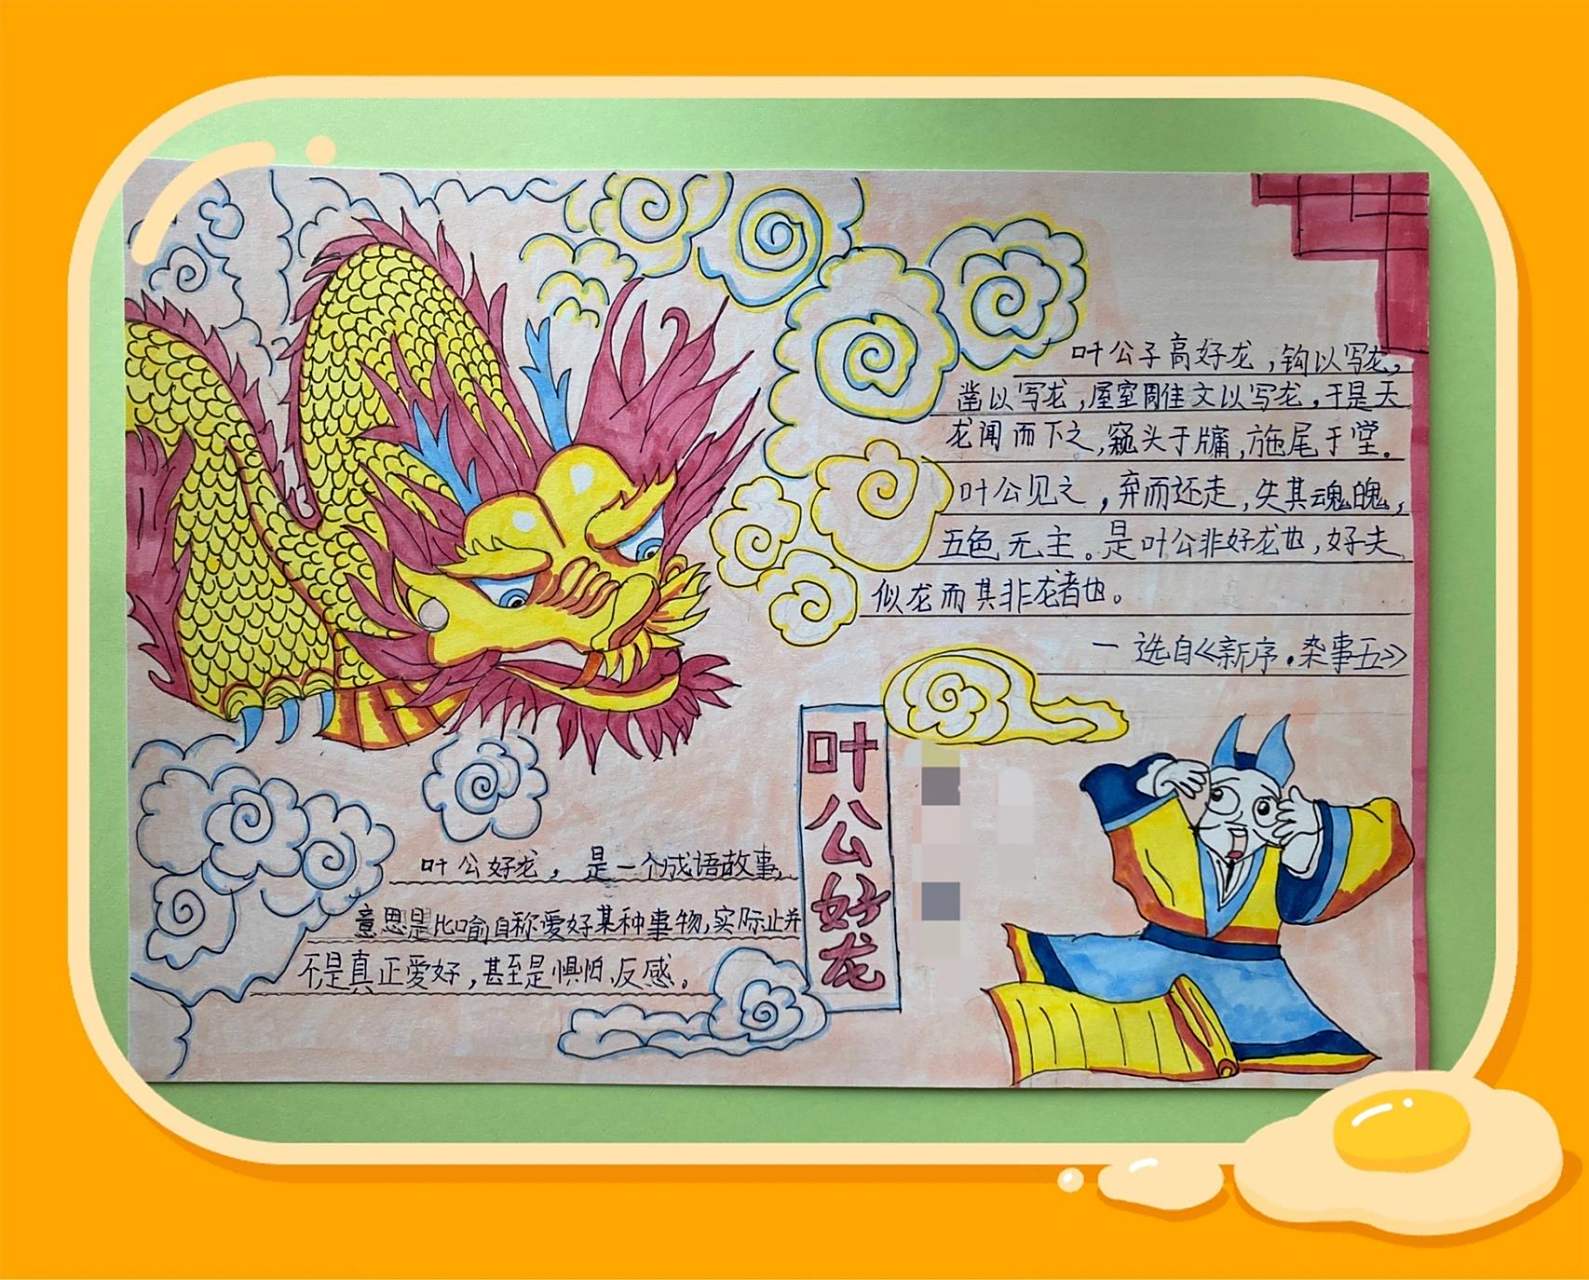 叶公子高好龙,钩以写龙,
凿以写龙,屋室雕文以写龙,于是天
龙闻而下之,窥头于牖,施尾于堂。
叶公见之,弃而还走,失其魂魄,
五色无主。是叶公非好龙也,好夫
似龙而其非龙者也。
一选自《新序·杂事五》
叶公好龙
叶公好龙,是一个成语故事,
意思是比喻自称爱好某种事物,实际止并
不是真正爱好,甚至是惧怕、反感。